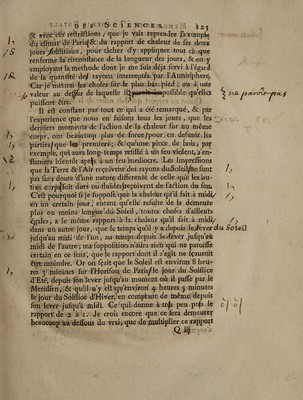 DES SCIENCES 125
& avec ces restrictions, que je vais reprendre l'exemple
du climat de Paris & du rapport de chaleur de ses deux
jours solsticiaux, pour tâcher d'y appliquer tout ce que
renferme la circonstance de la longueur des jours, & en y
employant la methode dont je me suis déja servi à l'égard
de la quantité des rayons interceptés par l'Atmosphere.
Car je mettrai les choses sur le plus bas pied, ou à une
valeur au dessous de laquelle il impossible qu'elles
puissent être.
ne paroît pas
Il est constant par tout ce qui a été remarqué, & par
l'experience que nous en faisons tous les jours, que les
derniers moments de l'action de la chaleur sur un même
corps, ont beaucoup plus de force pour en desunir les
parties que les premiers; & qu'une piece de bois, par
exemple, qui aura long-temps resisté à un feu violent, s'en-
flamera bientôt après à un feu mediocre. Les impressions
que la Terre & l'Air reçoivent des rayons du Soleil ne sont
pas sans doute d'une nature differente de celle que les au-
tres corps soit durs ou fluides reçoivent de l'action du feu.
C'est pourquoi si je suppose que la chaleur qu'il fait à midi
en un certain jour, étant qu'elle resulte de la demeure
plus ou moins longue du Soleil, toutes choses d'ailleurs
égales, a le même rapport à la chaleur qu'il fait à midi
dans un autre jour, que le temps qu'il y a depuis le lever du Soleil
jusqu'au midi de l'un, au temps depuis le lever jusqu'au
midi de l'autre; ma supposition n'aura rien qui ne paroisse
certain en ce sens, que le rapport dont il s'agit ne sçauroit
être moindre. Or on sçait que le Soleil est environ 8 heu-
res 3 minutes sur l'Horison de Paris le jour du Solstice
d'Esté, depuis son lever jusqu'au moment où il passe par le
Meridien, & qu'il n'y est qu'environ 4 heures 5 minutes
le jour du Solstice d'Hiver, en comptant de même depuis
son lever jusqu'à midi. Ce qui donne à très peu près le
rapport de 2 à 1. Je crois encore que ce sera demeurer
beaucoup au dessous du vrai, que de multiplier ce rapport
Q iij